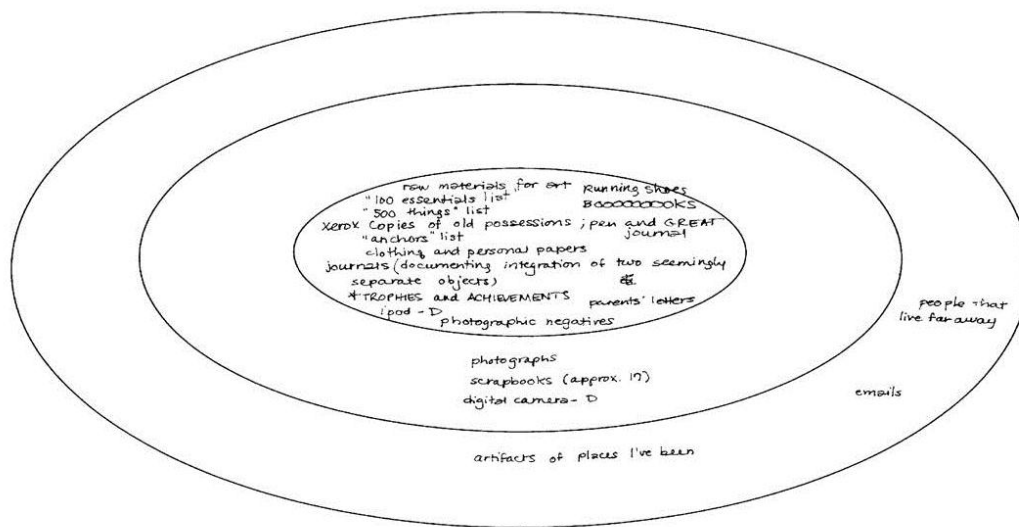 raw materials for art Running Shoes
"100 essentials list" BOOOOOOOOKS
"500 things" list
Xerox Copies of old possessions ; pen and GREAT journal
"anchors" list
clothing and personal papers
journals (documenting integration of two seemingly
separate objects)
*TROPHIES and ACHIEVEMENTS parents' letters
ipod - D
photographic negatives
photographs
scrapbooks (approx. 17)
digital camera - D
people that
live far away
emails
artifacts of places I've been